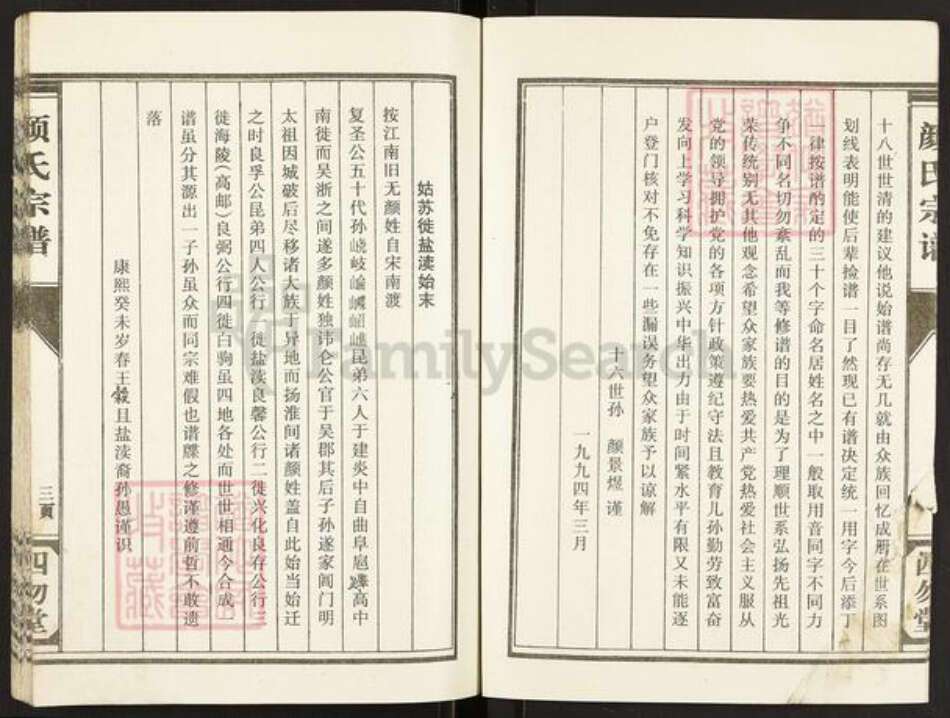 十八世世清的建议他说始谱尚存无几就由众族回忆成册在世系图
划线表明能使后辈捡谱一目了然现已有谱决定统一用字今后添丁
一律按谱酌定的三十个字命名居姓名之中一般取用音同字不同力
争不同名切勿紊乱而我等修谱的目的是为了理顺世系弘扬先祖光
荣传统别无其他观念希望众家族要热爱共产党热爱社会主义服从
党的领导拥护党的各项方针政策遵纪守法且教育儿孙勤劳致富奋
发向上学习科学知识振兴中华出力由于时间紧水平有限又未能逐
户登门核对不免存在一些漏误务望众家族予以谅解
十六世孙 颜景煜 谨
一九九四年三月
颜氏宗谱
四勿堂
姑苏徙盐渎始末
按江南旧无颜姓自宋南渡
复圣公五十代孙峣岐昆弟六人于建炎中自曲阜扈跸高中
南徙而吴浙之间遂多颜姓独讳仑公官于吴郡其后子孙遂家阊门明
太祖因城破后尽移诸大族于异地而扬淮间诸颜姓盖自此始当始迁
之时良孚公昆弟四人公行一徙盐渎良馨公行二徙兴化良存公行三
徙海陵(高邮)良弼公行四徙白驹虽四地各处而世世相通今合成一
谱虽分其源出一子孙虽众而同宗难假也谱牒之修谨遵前哲不敢遗
落
康熙癸未岁春王榖且盐渎裔孙愚谨识
颜氏宗谱
三页
四勿堂
FamilySearch